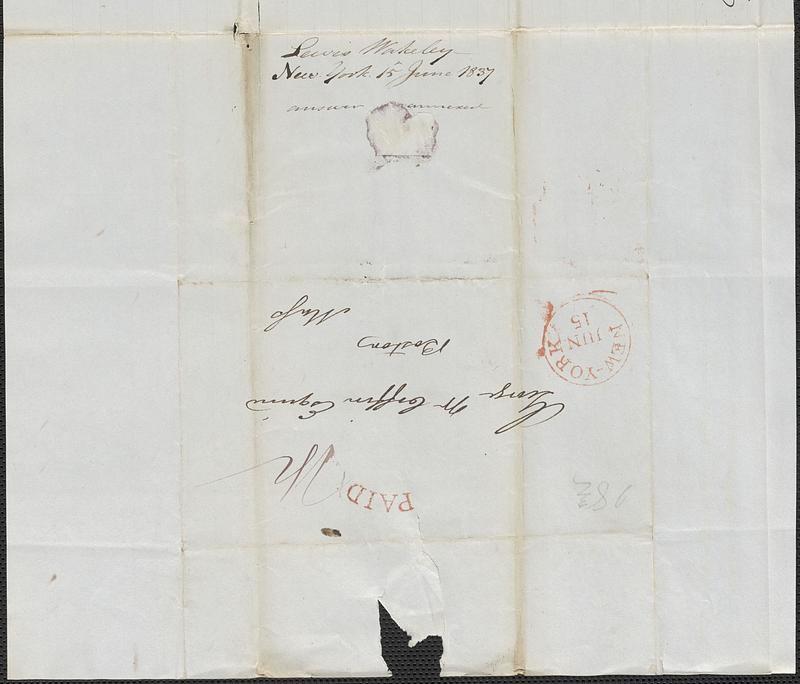 Lewis Wakeley
New York 15 June 1837
answer annexed
NEW-YORK
JUN
15
George W Coffin Esquire
Boston
Mass
PAID